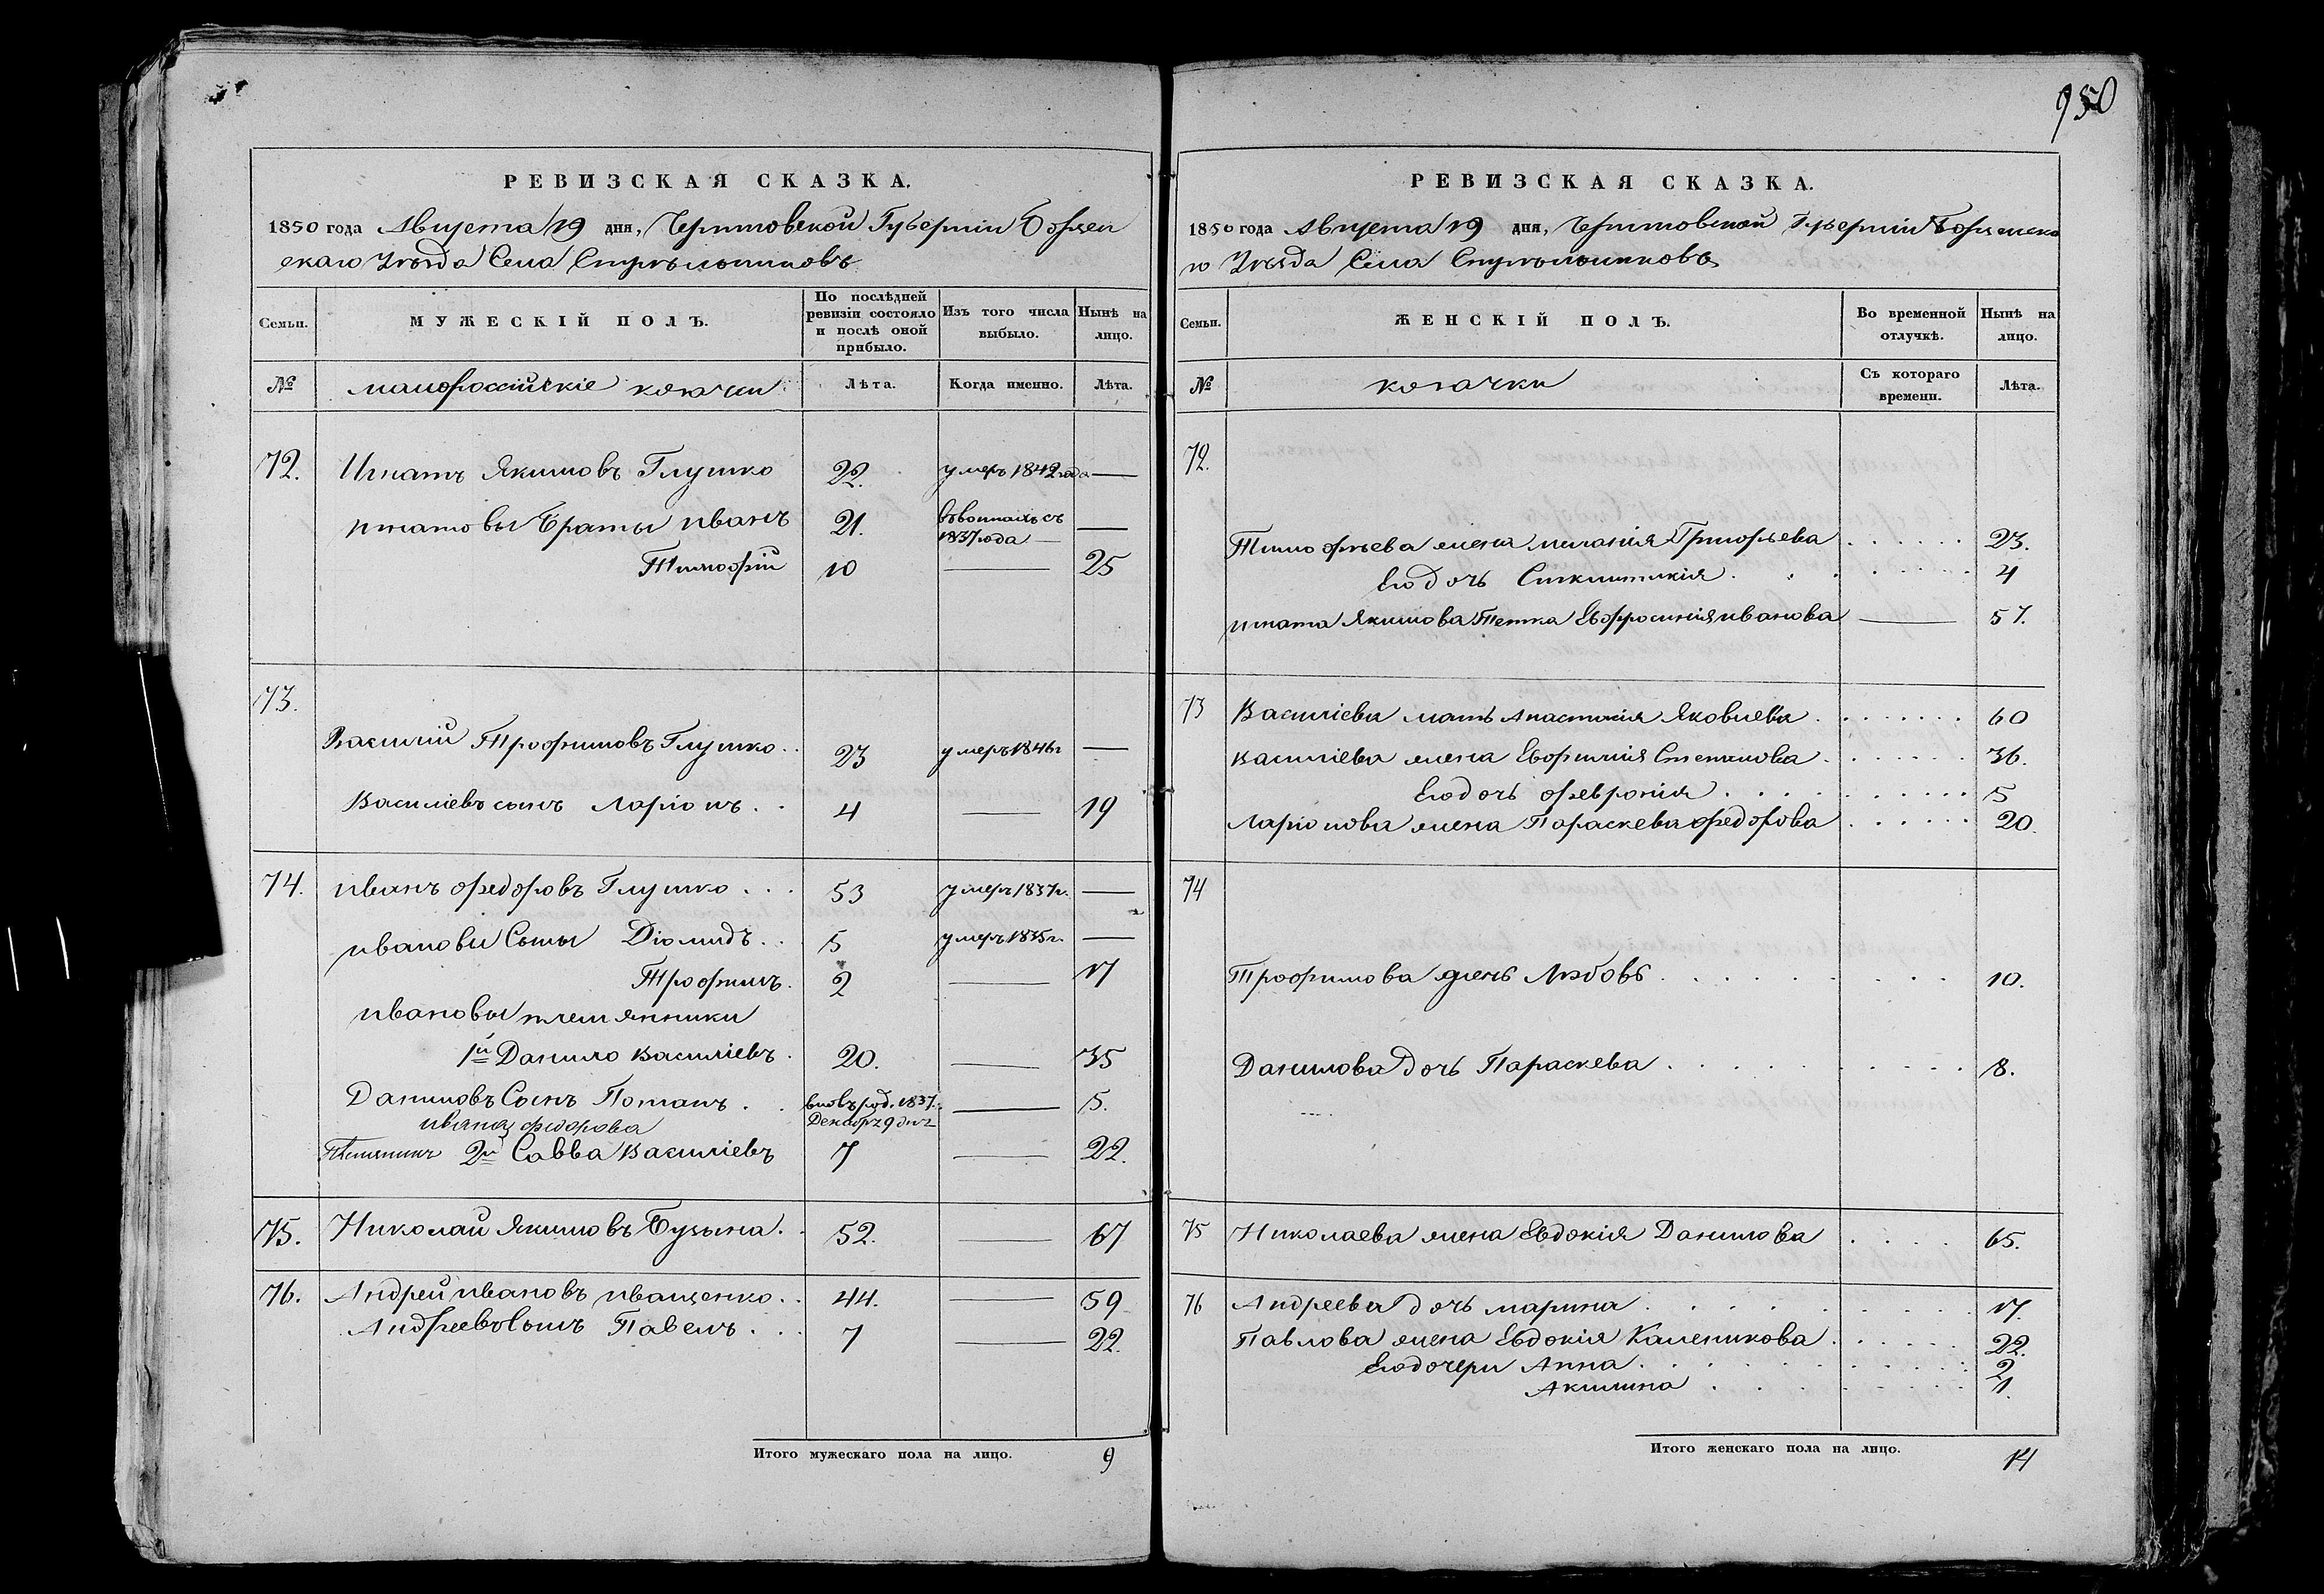 950
РЕВИЗСКАЯ СКАЗКА.
1850 года Августа 19 дня, Черниговской Губерніи Борзен
скаго Уѣзда Села Стрѣльниковъ
Семьи.
МУЖЕСКІЙ ПОЛЪ.
По послѣдней ревизіи состояло и послѣ оной прибыло.
Изъ того числа выбыло.
Нынѣ на лицо.
№ малороссійскіе козаки Лѣта. Когда именно. Лѣта.
72. Игнатъ Якимовъ Глушко 22. умеръ 1842 года —
Игнатовы Браты иванъ 21. 1837 года —
Тимофій 10 — 25
73.
Василій Трофимовъ Глушко 23 умеръ 1846г —
Василіевъ сынъ Ларіонъ 4 — 19
74. иванъ Федоровъ Глушко 53 умеръ 1837г. —
ивановы Сыны Діомидъ 5 умеръ 1835г. —
Трофимъ 2 — 17
ивановы племянники
1й Данило Василіевъ 20. — 35
Даниловъ Сынъ Потапъ вновь род. 1837. — 5.
ивана федорова Декабря 9 дня
2й Савва Василіевъ 7 — 22.
75. Николай Якимовъ Бузына 52. — 67
76. Андрей ивановъ иващенко 44. — 59
Андреевъ Сынъ Павелъ 7 — 22.
Итого мужескаго пола на лицо. 9
РЕВИЗСКАЯ СКАЗКА.
1850 года Августа 19 дня, Черниговской Губерніи Борзенска
го Уѣзда Села Стрѣльниковъ
Семьи.
ЖЕНСКІЙ ПОЛЪ.
Во временной отлучкѣ.
Нынѣ на лицо.
№ козачки Съ котораго времени. Лѣта.
72.
Тимофѣева жена миланія Григорьева 23.
Его дочь 4
игната Якимова Тетка Евфросинія иванова — 57.
73 Василіева мать Анастасія Яковлева 60
василіева жена Евфимія Степанова 36.
Его дочь февронія 15
Ларіонова жена Параскева федорова 20.
74
Трофимова Любовь 10.
Данилова дочь Параскева 8.
75 Николаева жена Евдокія Данилова 65.
76 Андреева дочь марина 17.
Павлова жена Евдокія Каленикова 22.
Его дочери Анна 2
Акилина 1.
Итого женскаго пола на лицо. 14